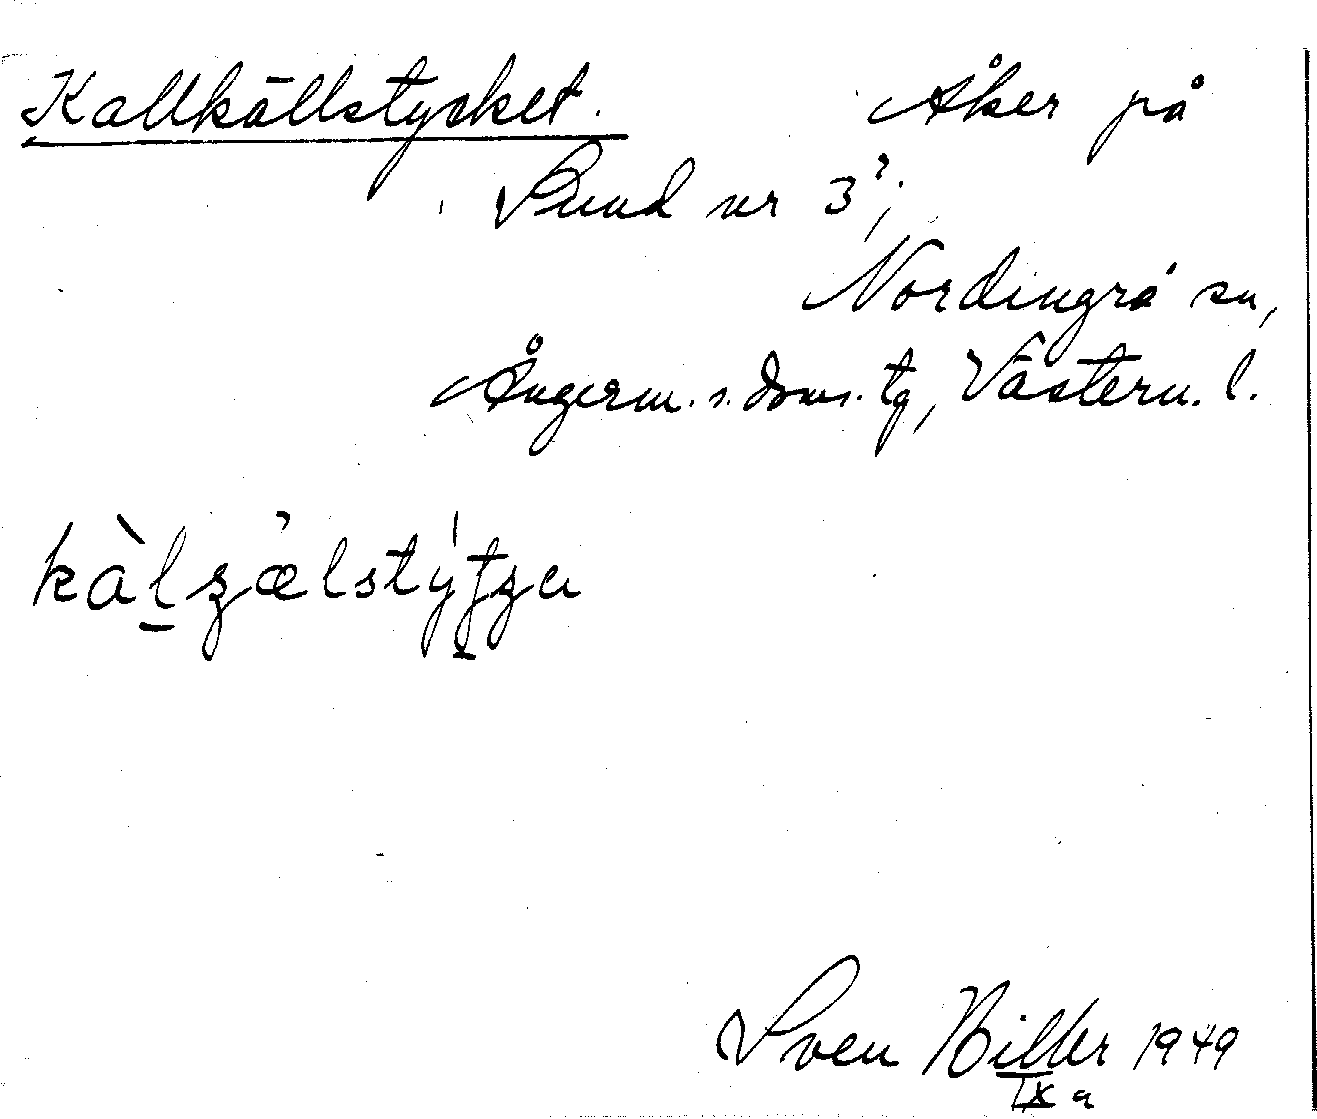 Kallkällstycket. Åker på
Sund nr 3²;
Nordingrå sn,
Ångerm. s. doms. tg, Västern. l.
Sven Hiller 1949
IX a